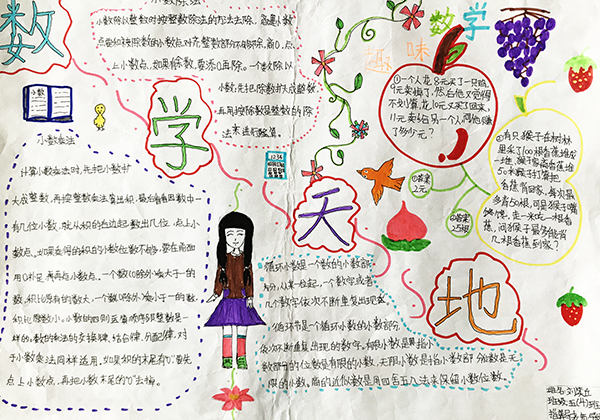 数学天地
趣味数学
小数除法
小数除以整数时按整数除法的方法去除,商的小数
点要和被除数的小数点对齐整数部分不够除,商0,点
上小数点,如果有余数,要添0再除。一个数除以
小数,先把除数扩大成整数
再用按除数是整数的除
法来进行计算。
小数
小数乘法
计算小数乘法时,先把小数扩
大成整数,再按整数乘法算出积,最后看因数中一共
有几位小数,就从积的右边起数出几位,点上小
数点,如果乘得的积的小数位数不够,要在前面
用0补足,再点小数点。一个数(0除外)乘大于一的
数,积比原有的数大,一个数(0除外)乘小于一的数,
积比原数小。小数的四则运算顺序跟整数是一
样的,整数的乘法的交换律,结合律,分配律,对
于小数乘法同样适用。如果积的末尾有0,要先
点上小数点,再把小数末尾的“0”去掉。
1234
循环小数是一个数的小数部
分,从某一位起,一个数字或者
几个数字依次不断重复出现
循环节是一个循环小数的小数部分
依次不断重复出现的数字。有限小数是指小
数部分的位数是有限的小数,无限小数是指小数部分位数是无
限的小数。商的近似数是用四舍五入法来保留小数位数。
①一个人花8元买了一只鸡,
9元卖掉了,然后他又觉得
不划算,花10元又买了回来,
11元卖给另一个人,问他赚
了多少元?
①答案
2元
②有只猴子在树林
里采了100根香蕉堆成
一堆,猴子家离香蕉堆
50米,猴子打算把
香蕉背回家,每次最
多背50根,可是猴子嘴
馋,走一米吃一根香
蕉,问猴子最多能背
几根香蕉到家?
②答案
25根